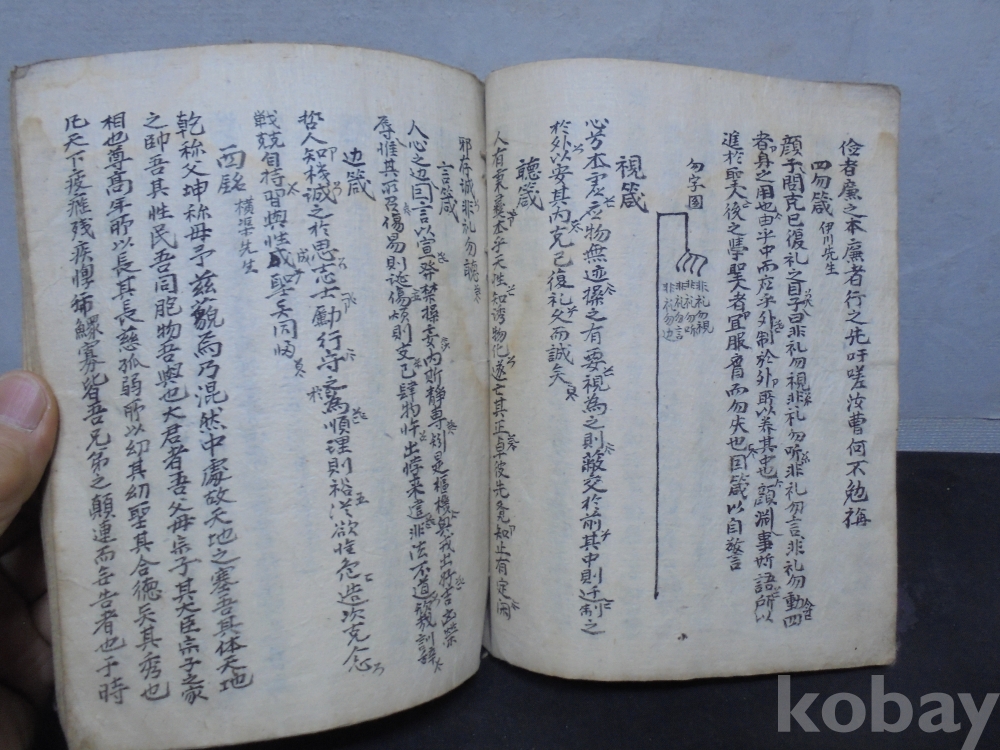 儉者廉之本廉者行之先吁嗟汝曹何不勉旃
四勿箴 伊川先生
顔子問克己復礼之目子曰非礼勿視非礼勿听非礼勿言非礼勿動四
者身之用也由乎中而应乎外制於外所以养其中也顔淵事斯語所以
進於聖人後之學聖人者宜服膺而勿失也因箴以自警
勿字图
非礼勿視
非礼勿听
非礼勿言
非礼勿
視箴
心兮本虚应物無迹操之有要視為之則蔽交於前其中則迁制之
於外以安其内克己復礼久而誠矣
聽箴
人有秉彛本乎天性知誘物化遂亡其正卓彼先覺知止有定闲
邪存誠非礼勿聽
言箴
人心之动因言以宣發禁操妄内斯靜專矧是樞機興戎出好吉凶荣
辱惟其所召傷易則誕傷煩則支己肆物忤出悖來違非法不道欽訓辞
箴
哲人知幾誠之於思志士勵行守之為順理則裕從欲惟危造次克念
戦兢自持習與性成聖矣同
西銘 橫渠先生
乾称父坤称母予玆藐焉乃混然中處故天地之塞吾其体天地
之帥吾其性民吾同胞物吾與也大君者吾父母宗子其大臣宗子之家
相也尊高年所以長其長慈孤弱所以幼其幼聖其合德矣其秀也
凡天下疲癃残疾惸鰥寡皆吾兄弟之顛連而無告者也于時
kobay